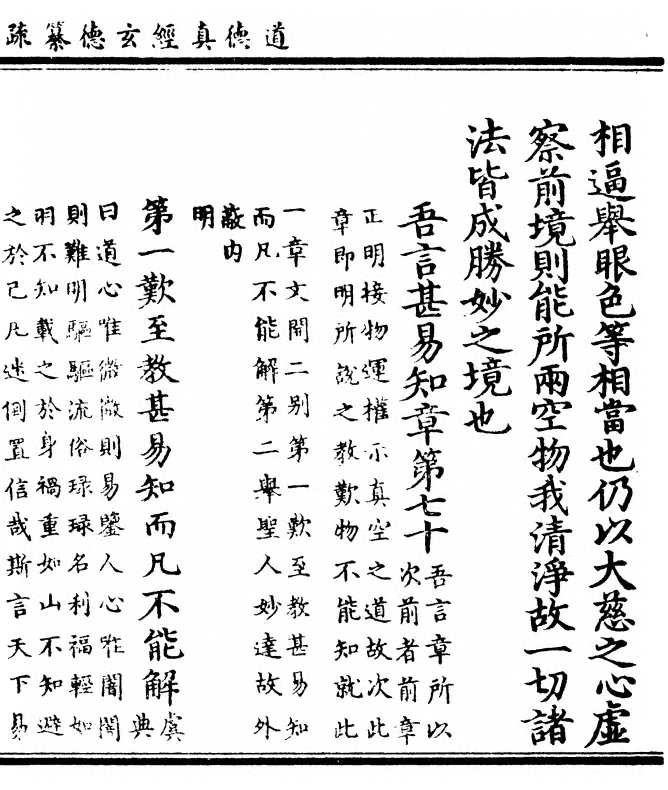 道德真經玄德纂疏
相逼舉眼色等相當也仍以大慈之心虛
察前境則能所兩空物我清淨故一切諸
法皆成勝妙之境也
吾言甚易知章第七十
吾言章所以
次前者前章
正明接物運權示真空之道故次此
章即明所說之教歎物不能知就此
一章文開二别第一歎至教甚易知
而凡不能解第二舉聖人妙達故外
蔽内
明
第一歎至教甚易知而凡不能解
虞
典
曰道心唯微微則易鑒人心唯闇闇
則難明驅驅流俗琭琭名利福輕如
羽不知載之於身禍重如山不知避
之於己凡迷倒置信哉斯言天下易